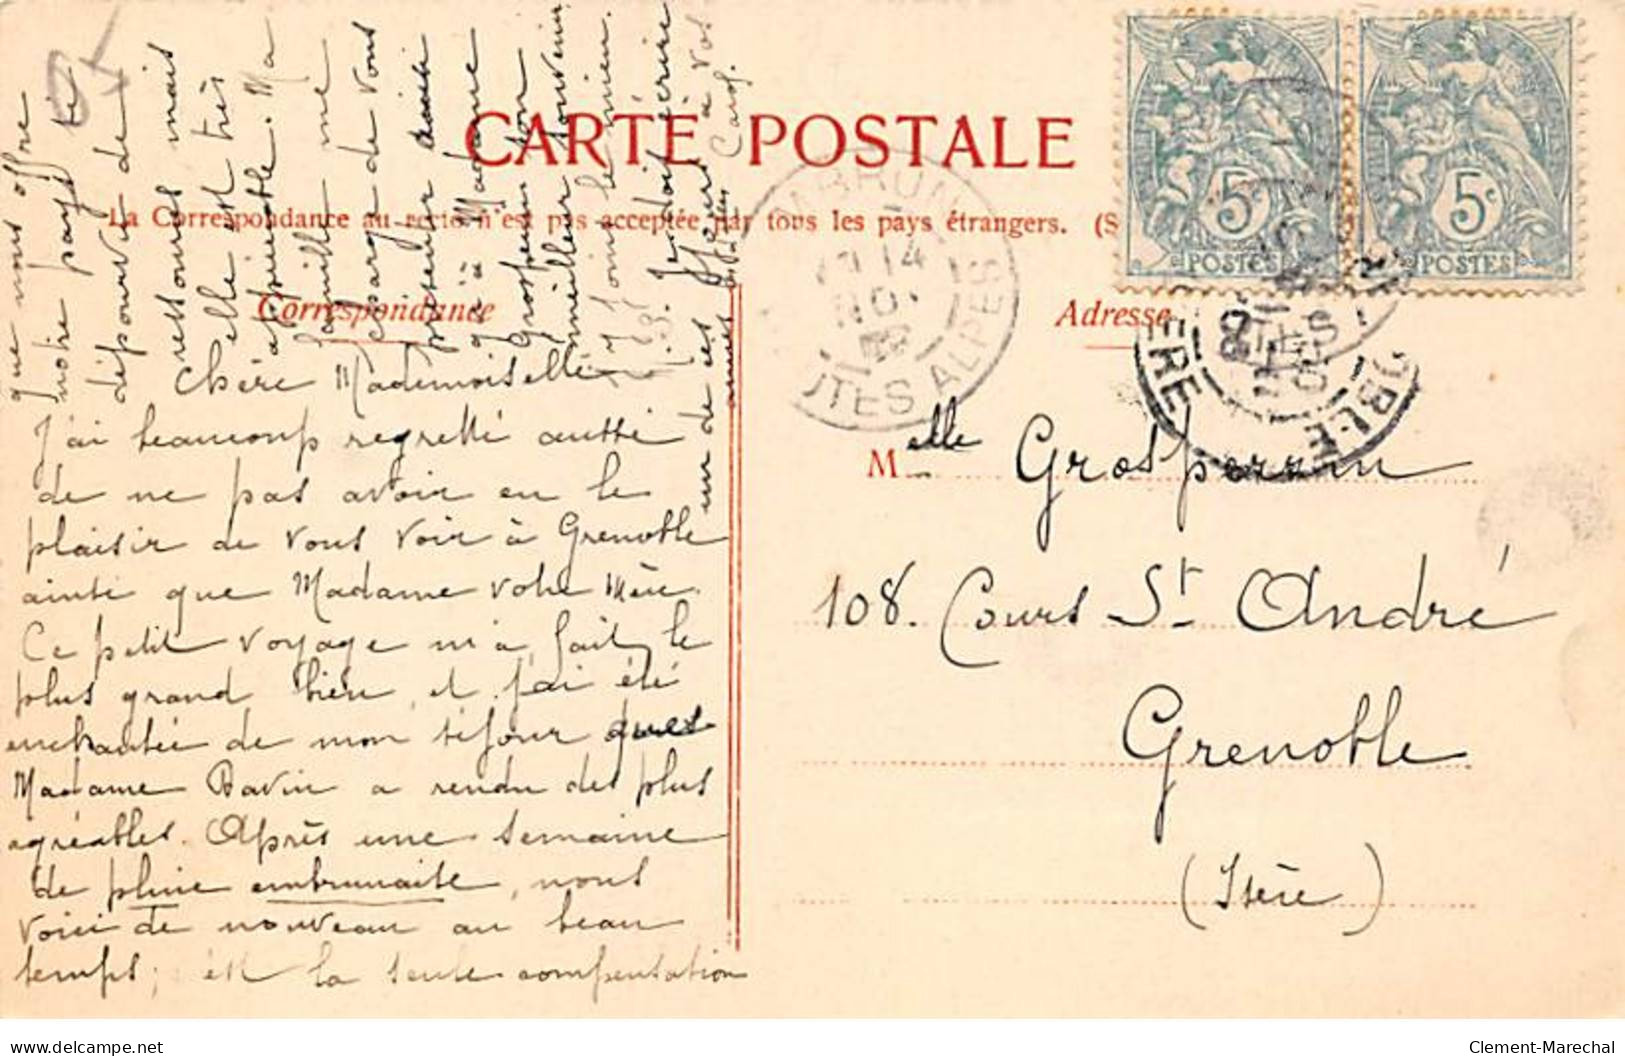 CARTE POSTALE
La Correspondance au recto n'est pas acceptée par tous les pays étrangers. (S
Correspondance
Adresse
5c
POSTES
5c
POSTES
EMBRUN
14
HAUTES ALPES
Chère Mademoiselle
J'ai beaucoup regretté autté
de ne pas avoir eu le
plaisir de vous voir à Grenoble
ainsi que Madame votre Mère.
Ce petit voyage m'a fait le
plus grand bien et j'ai été
enchantée de mon séjour que
Madame Bavin a rendu des plus
agréables. Après une semaine
de pluie embrunaise, nous
voici de nouveau au beau
temps; c'est la seule compensation
que nous offre
notre pays si
dépourvu de
ressources mais
elle est très
appréciable. Ma
famille me
charge de vous
présenter ainsi
qu'à Madame
Grosperrin son
meilleur souvenir
j'y joins le mien.
Melle Grosperrin
108. Cours St André
Grenoble
(Isère)
delcampe.net
Clement-Marechal